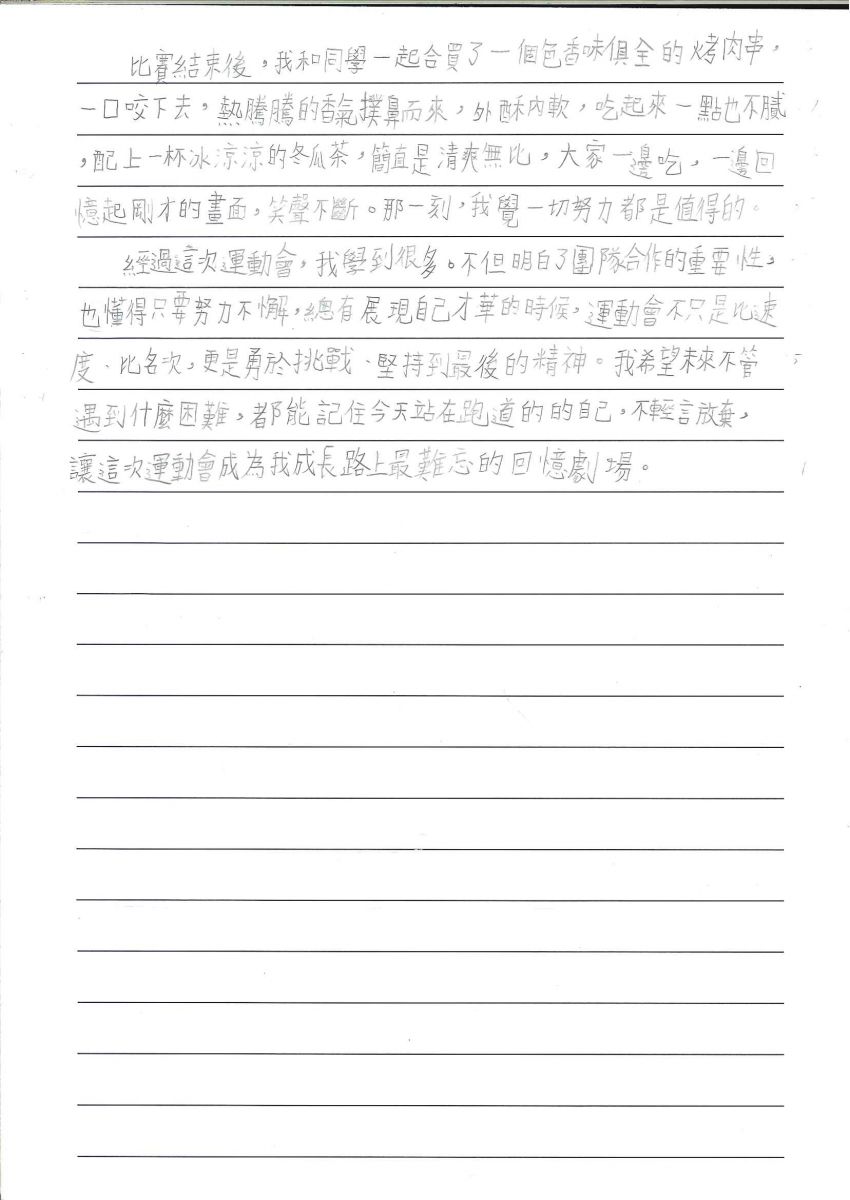 比賽結束後，我和同學一起合買了一個色香味俱全的烤肉串，
一口咬下去，熱騰騰的香氣撲鼻而來，外酥內軟，吃起來一點也不膩
，配上一杯冰涼涼的冬瓜茶，簡直是清爽無比，大家一邊吃，一邊回
憶起剛才的畫面，笑聲不斷。那一刻，我覺一切努力都是值得的。
經過這次運動會，我學到很多。不但明白了團隊合作的重要性，
也懂得只要努力不懈，總有展現自己才華的時候，運動會不只是比速
度、比名次，更是勇於挑戰、堅持到最後的精神。我希望未來不管
遇到什麼困難，都能記住今天站在跑道的的自己，不輕言放棄，
讓這次運動會成為我成長路上最難忘的回憶劇場。